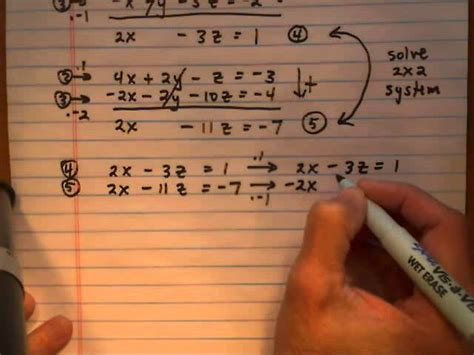 -x + y - 3z = -2
·-1
2x - 3z = 1 ④
② ·1 → 4x + 2y - z = -3
③ ·-2 → -2x - 2y - 10z = -4 ↓+
2x - 11z = -7 ⑤
solve
2x2
system
④ 2x - 3z = 1 ·1 → 2x - 3z = 1
⑤ 2x - 11z = -7 ·-1 → -2x
VIS-à-VIS
WET ERASE